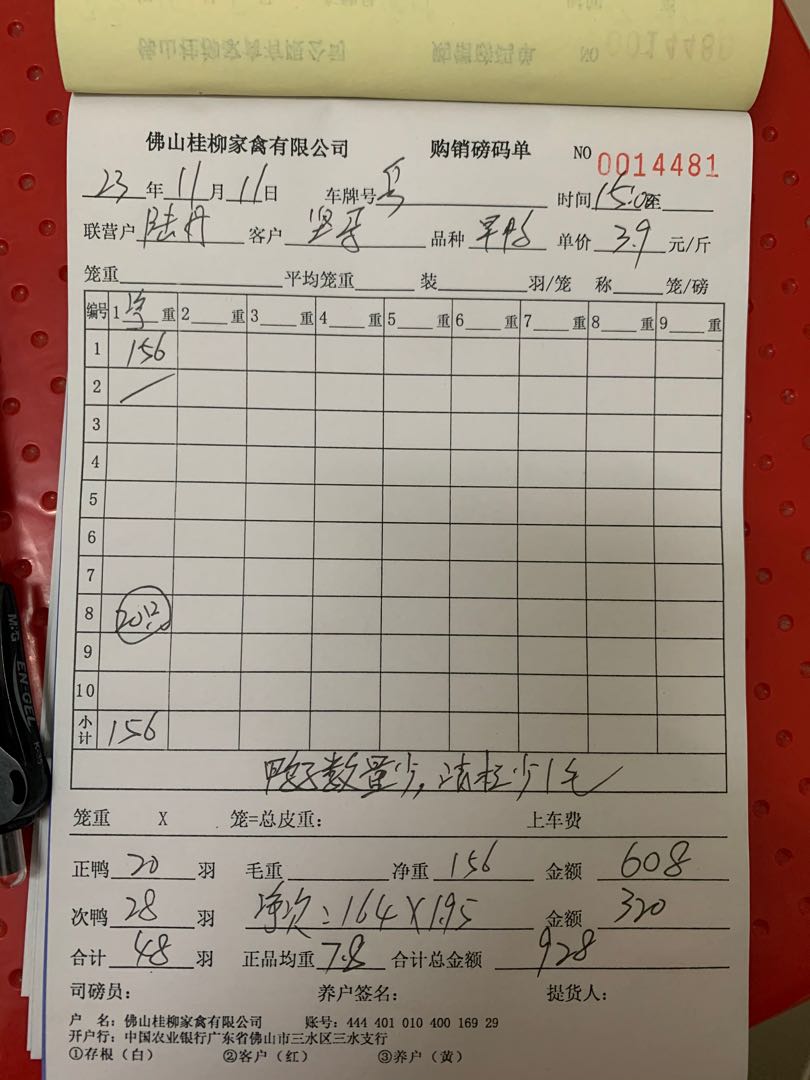 佛山桂柳家禽有限公司 购销磅码单 NO 0014481
23年11月11日 车牌号 时间15:0至
联营户 陆丹 客户 坚哥 品种 单价 3.9 元/斤
笼重 平均笼重 装 羽/笼 称 笼/磅
编号 1净重 2 重 3 重 4 重 5 重 6 重 7 重 8 重 9 重
1 156
2
3
4
5
6
7
8 20羽
9
10
小计 156
鸭子数量少,请按少1毛
笼重 X 笼=总皮重: 上车费
正鸭 20 羽 毛重 净重 156 金额 608
次鸭 28 羽 净次:164×1.95 金额 320
合计 48 羽 正品均重 7.8 合计总金额 928
司磅员: 养户签名: 提货人:
户 名:佛山桂柳家禽有限公司 账号:444 401 010 400 169 29
开户行:中国农业银行广东省佛山市三水区三水支行
①存根(白) ②客户(红) ③养户(黄)
M&G
EN-GEL